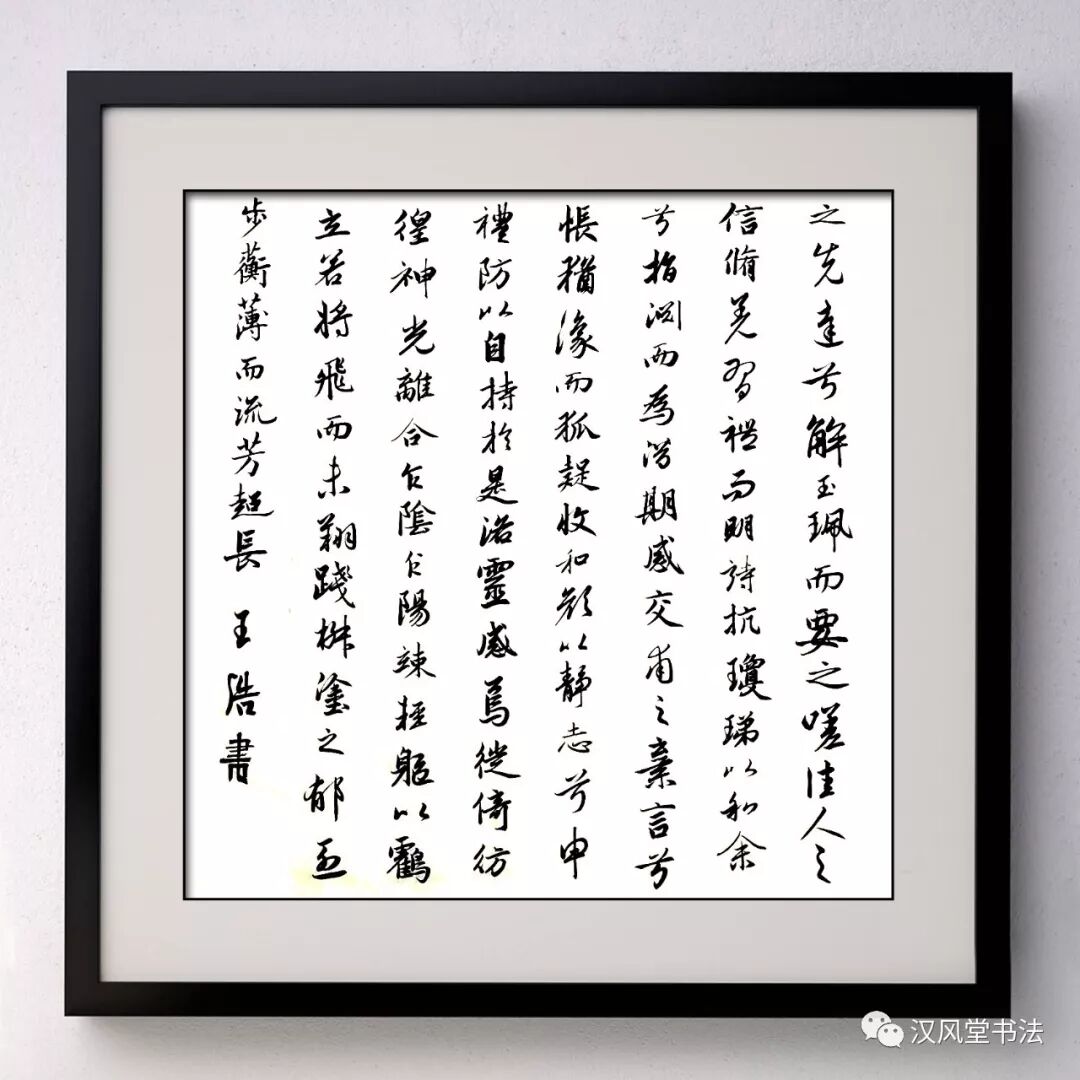 之先達兮解玉珮而要之嗟佳人之
信脩羌習禮而明詩抗瓊珶以和余
兮指淵而為潛期感交甫之棄言兮
悵猶豫而狐疑收和顏以靜志兮申
禮防以自持於是洛靈感焉徙倚彷
徨神光離合乍陰乍陽竦輕軀以鶴
立若將飛而未翔踐椒塗之郁烈
步蘅薄而流芳超長 王浩書
汉风堂书法